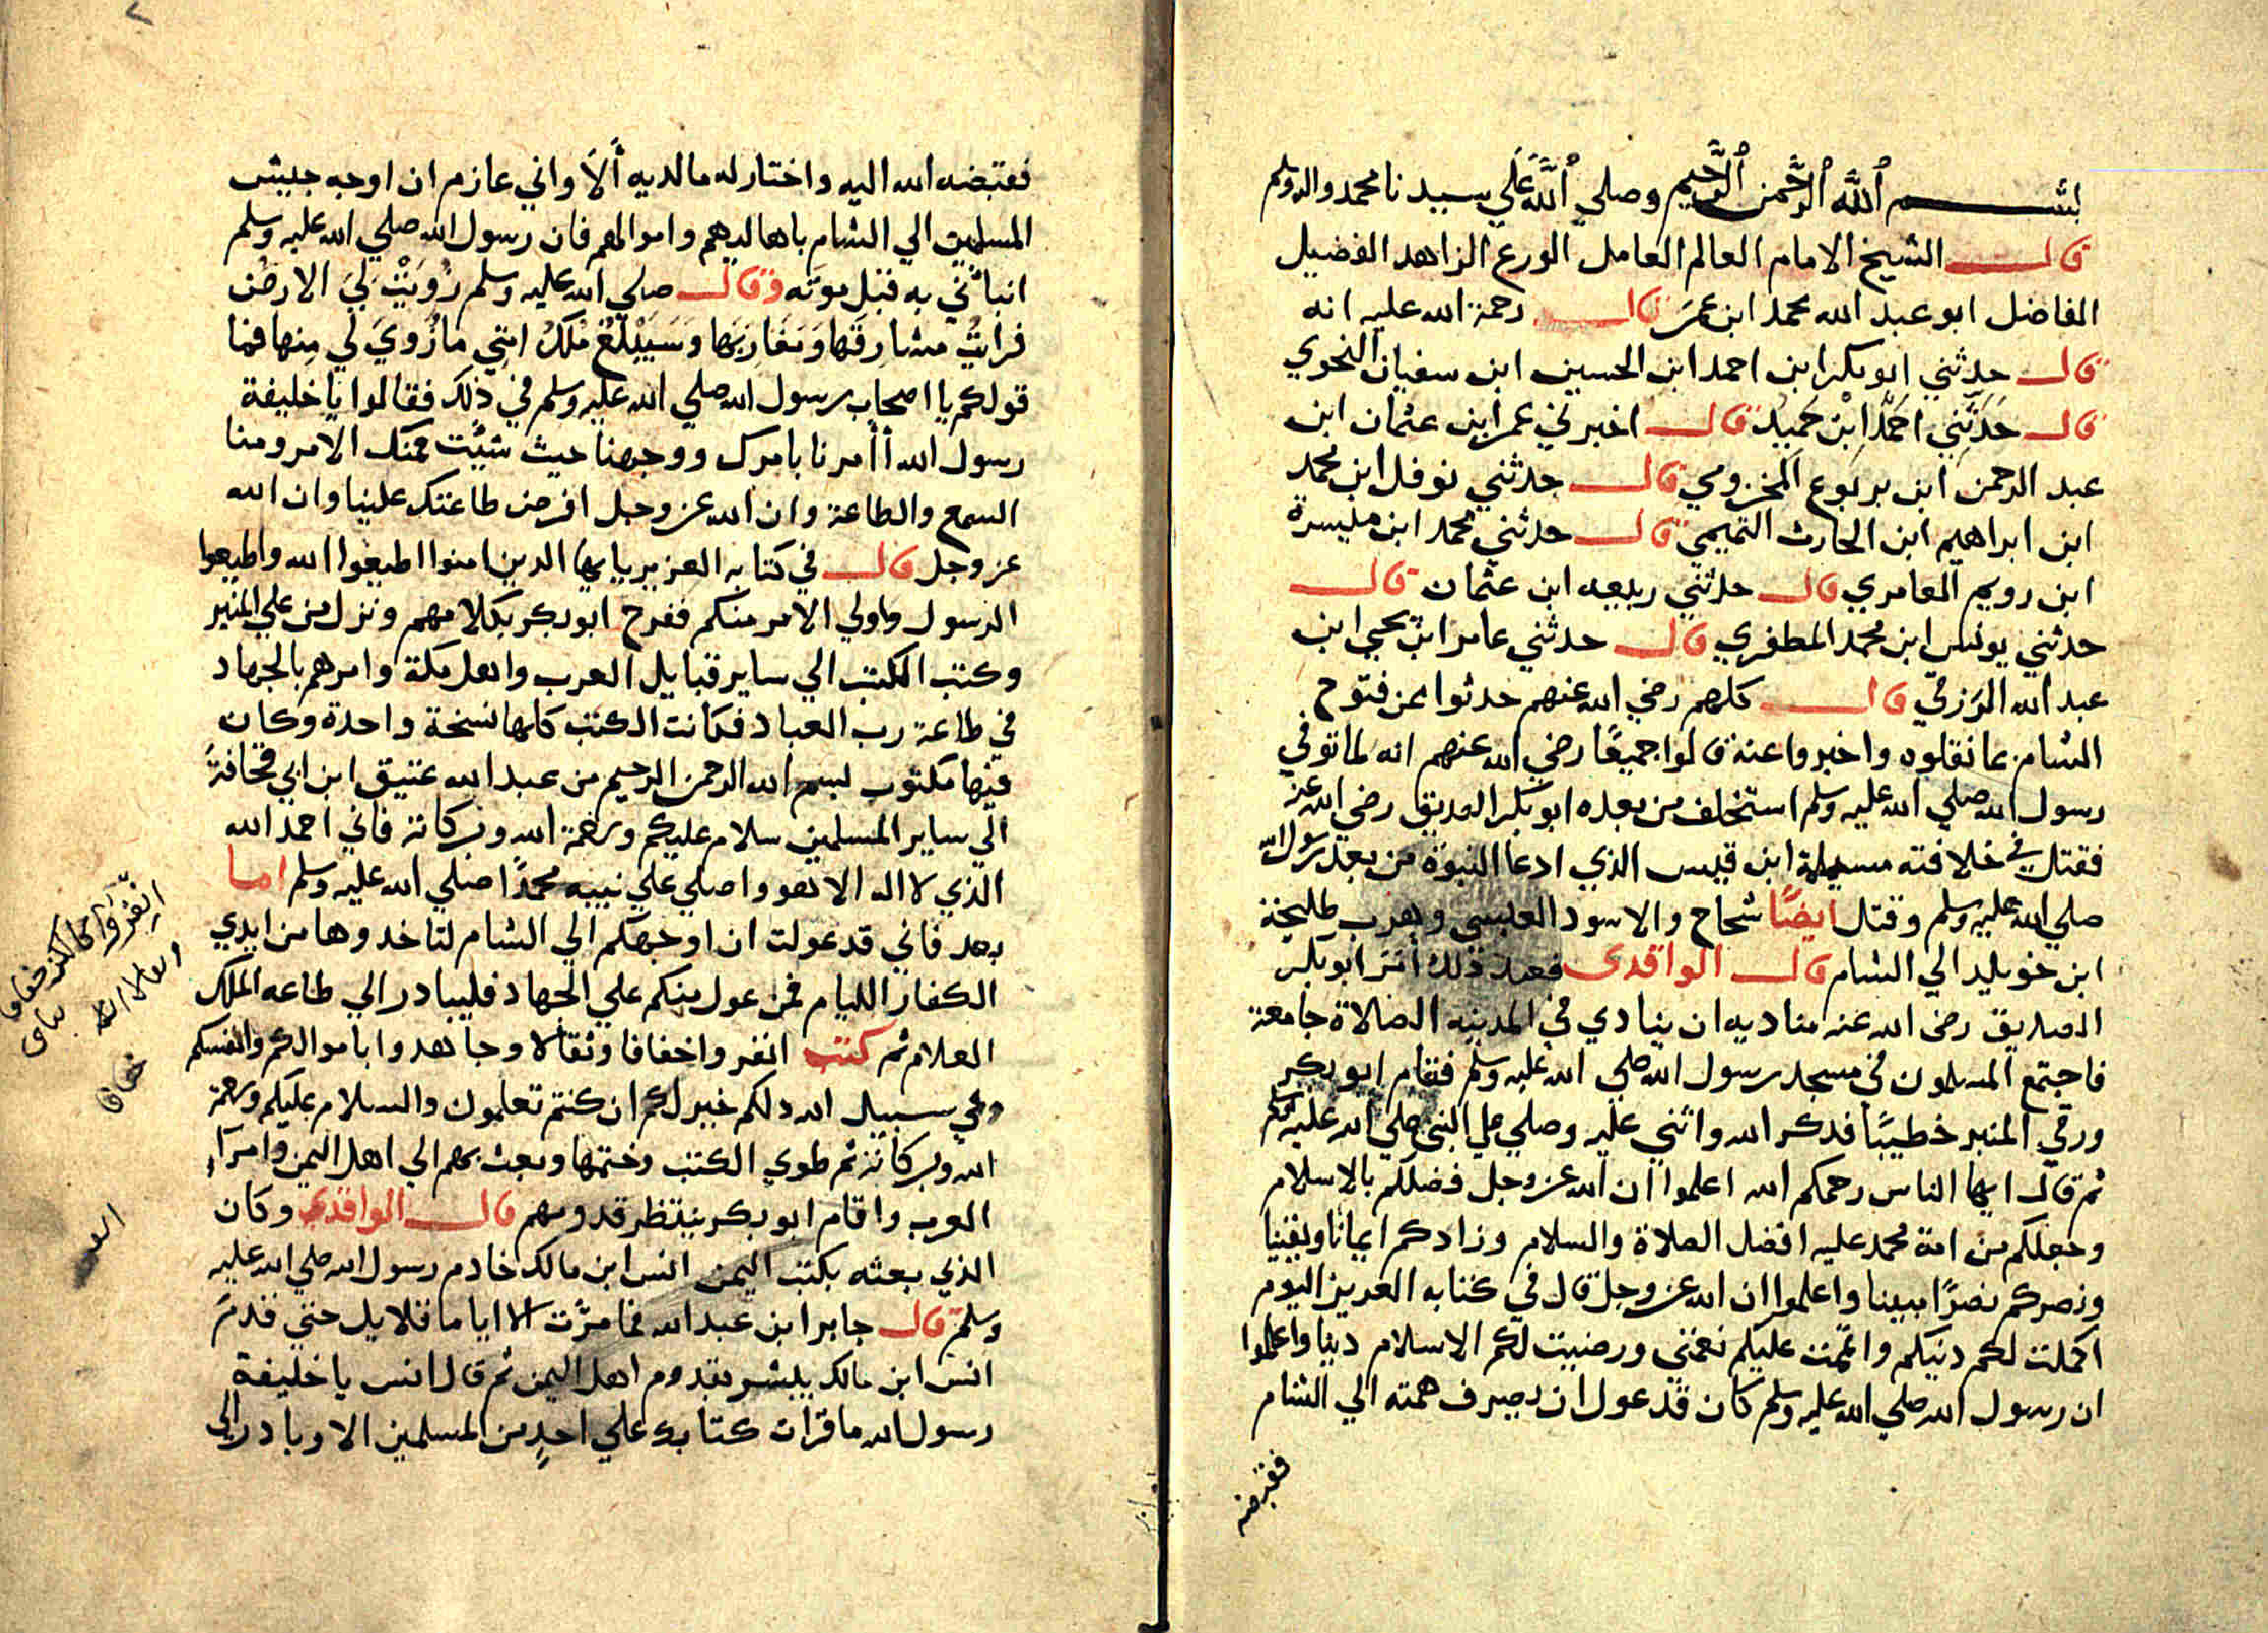 بسم الله الرحمن الرحيم وصلي الله علي سيدنا محمد واله وسلم
قال الشيخ الامام العالم العامل الورع الزاهد الفضيل
الفاضل ابو عبد الله محمد ابن عمر قال رحمة الله عليه انه
قال حدثني ابو بكر ابن احمد ابن الحسين ابن سفيان النحوي
قال حدثني احمد ابن حميد قال اخبرني عمر ابن عثمان ابن
عبد الرحمن ابن يربوع المخزومي قال حدثني نوفل ابن محمد
ابن ابراهيم ابن الحارث التميمي قال حدثني محمد ابن مليسرة
ابن رويم العامري قال حدثني ربيعه ابن عثمان قال
حدثني يونس ابن محمد المطفري قال حدثني عامر ابن يحيي ابن
عبد الله الزرقي قال كلهم رضي الله عنهم حدثوا عن فتوح
الشام عما نقلوه واخبروا عنه قالوا جميعًا رضي الله عنهم انه لما توفي
رسول الله صلي الله عليه وسلم استخلف من بعده ابو بكر الصديق رضي الله عنه
فقتل في خلافته مسيلمة ابن قيس الذي ادعا النبوة من بعد رسول الله
صلي الله عليه وسلم وقتل ايضًا شجاح والاسود العبسي وهرب طليحة
ابن خويليد الي الشام قال الواقدى فعند ذلك أمر ابو بكر
الصديق رضى الله عنه مناديه ان ينادي في المدينه الصلاة جامعة
فاجتمع المسلمون في مسجد رسول الله صلي الله عليه وسلم فقام ابو بكر
ورقي المنبر خطيبًا فدكر الله واثني عليه وصلي علي النبي صلي الله عليه وسلم
ثم قال ايها الناس رحمكم الله اعلموا ان الله عز وجل فضلكم بالاسلام
وجعلكم من امة محمد عليه افضل الصلاة والسلام وزادكم ايمانا ويقينا
ونصركم نصرًا مبينا واعلموا ان الله عز وجل قال في كتابه العزيز اليوم
اكملت لكم دينكم واتممت عليكم نعمتي ورضيت لكم الاسلام دينا واعلموا
ان رسول الله صلي الله عليه وسلم كان قد عول ان يصرف همته الي الشام
فقبضه
فقبضه الله اليه واختار له ما لديه ألا واني عازم ان اوجه جيش
المسلمين الي الشام باهاليهم واموالهم فان رسول الله صلي الله عليه وسلم
انبأني به قبل موته وقال صلي الله عليه وسلم زويت لي الارض
فرايت مشارقها ومغاربها وسيبلغ ملك امتي ما زوي لي منها فما
قولكم يا اصحاب رسول الله صلي الله عليه وسلم في ذلك فقالوا يا خليفة
رسول الله أأمرنا بامرك ووجهنا حيث شيت فمنك الامر ومنا
السمع والطاعة وان الله عز وجل افرض طاعتك علينا وان الله
عز وجل قال في كتابه العزيز يا يها الدين امنوا اطيعوا الله واطيعوا
الرسول واولي الامر منكم ففرح ابو بكر بكلامهم ونزل من علي المنبر
وكتب الكتب الي ساير قبايل العرب واهل مكة وامرهم بالجهاد
في طاعة رب العباد فكانت الكتب كلها نسخة واحدة وكان
فيها مكتوب بسم الله الرحمن الرحيم من عبد الله عتيق ابن ابي قحافة
الي ساير المسلمين سلام عليكم ورحمة الله وبركاته فاني احمد الله
الذي لا اله الا هو واصلي علي نبيه محمدًا صلي الله عليه وسلم اما
بعد فاني قد عولت ان اوجهكم الي الشام لتاخدوها من ايدي
الكفار الليام فمن عول منكم علي الجهاد فليبادر الي طاعه الملك
العلام ثم كتب انفروا خفافا وثقالا وجاهدوا باموالكم وانفسكم
وفي سبيل الله دلكم خير لكم ان كنتم تعلمون والسلام عليكم ورحمة
الله وبركاته ثم طوي الكتب وختمها وبعث بهم الي اهل اليمن وامرآء
العرب واقام ابو بكر ينتظر قدومهم قال الواقدي وكان
الذي بعثه بكتب اليمن انس ابن مالك خادم رسول الله صلي الله عليه
وسلم قال جابر ابن عبد الله فما مرّت الا اياما قلايل حتي قدم
انس ابن مالك يبشر بقدوم اهل اليمن ثم قال انس يا خليفة
رسول الله ما قرات كتابك علي احدٍ من المسلمين الا وبادر الي